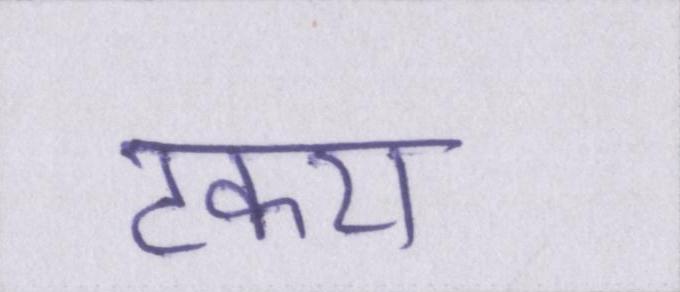 टकरा